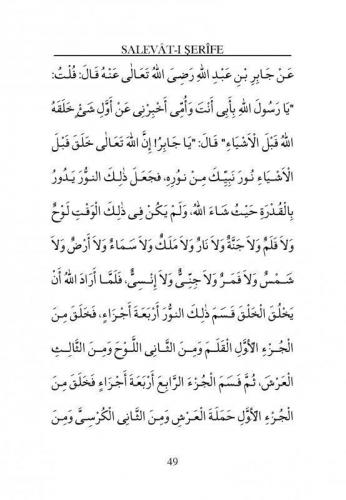 SALEVÂT-I ŞERÎFE
عَنْ جَابِرِ بْنِ عَبْدِ اللهِ رَضِيَ اللهُ تَعَالَى عَنْهُ قَالَ: قُلْتُ:
"يَا رَسُولَ اللهِ بِأَبِي أَنْتَ وَأُمِّي أَخْبِرْنِي عَنْ أَوَّلِ شَيْءٍ خَلَقَهُ
اللهُ قَبْلَ الْاَشْيَاءِ" قَالَ: "يَا جَابِرُ! إِنَّ اللهَ تَعَالَى خَلَقَ قَبْلَ
الْاَشْيَاءِ نُورَ نَبِيِّكَ مِنْ نُورِهِ، فَجَعَلَ ذٰلِكَ النُّورُ يَدُورُ
بِالْقُدْرَةِ حَيْثُ شَاءَ اللهُ، وَلَمْ يَكُنْ فِي ذٰلِكَ الْوَقْتِ لَوْحٌ
وَلاَ قَلَمٌ وَلاَ جَنَّةٌ وَلاَ نَارٌ وَلاَ مَلَكٌ وَلاَ سَمَاءٌ وَلاَ أَرْضٌ وَلاَ
شَمْسٌ وَلاَ قَمَرٌ وَلاَ جِنِّيٌّ وَلاَ إِنْسِيٌّ، فَلَمَّا أَرَادَ اللهُ أَنْ
يَخْلُقَ الْخَلْقَ قَسَمَ ذٰلِكَ النُّورَ أَرْبَعَةَ أَجْزَاءٍ، فَخَلَقَ مِنَ
الْجُزْءِ الْأَوَّلِ الْقَلَمَ وَمِنَ الثَّانِي اللَّوْحَ وَمِنَ الثَّالِثِ
الْعَرْشَ، ثُمَّ قَسَمَ الْجُزْءَ الرَّابِعَ أَرْبَعَةَ أَجْزَاءٍ فَخَلَقَ مِنَ
الْجُزْءِ الْأَوَّلِ حَمَلَةَ الْعَرْشِ وَمِنَ الثَّانِي الْكُرْسِيَّ وَمِنَ
49